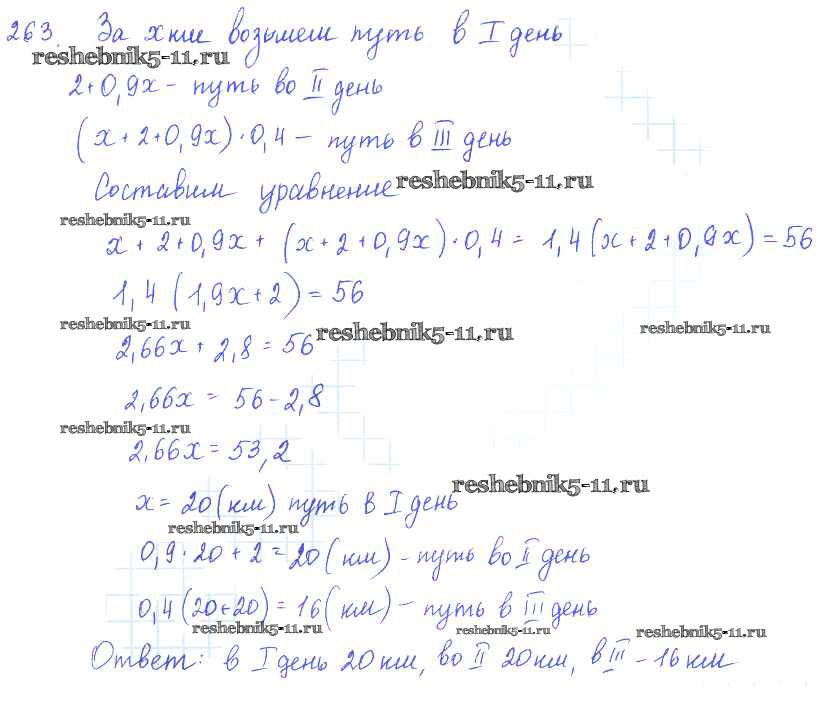 263. За х км возьмем путь в I день
reshebnik5-11.ru
2+0,9х – путь во II день
(х+2+0,9х)·0,4 – путь в III день
Составим уравнение reshebnik5-11.ru
reshebnik5-11.ru
х + 2+0,9х + (х+2+0,9х)·0,4 = 1,4(х+2+0,9х)=56
1,4 (1,9х+2)=56
reshebnik5-11.ru reshebnik5-11.ru reshebnik5-11.ru
2,66х + 2,8 = 56
2,66х = 56-2,8
reshebnik5-11.ru
2.66х = 53,2
х = 20(км) путь в I день reshebnik5-11.ru
reshebnik5-11.ru
0,9·20+2=20(км) – путь во II день
0,4(20+20)=16(км) – путь в III день
reshebnik5-11.ru reshebnik5-11.ru reshebnik5-11.ru
Ответ: в I день 20км, во II 20км, в III – 16км